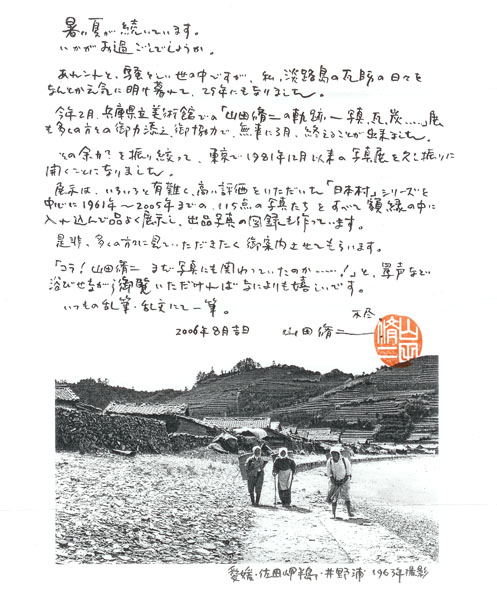 暑い夏が続いています。
いかがお過ごしでしょうか。
あれこれと、騒々しい世の中ですが、私、淡路島の瓦師の日々を
なんとか元気に明け暮れて、25年にもなりました。
今年2月、兵庫県立美術館での「山田脩二の軌跡ー写真、瓦、炭……」展
も多くの方々の御力添え、御協力で、無事に3月、終えることが出来ました。
その余力を振り絞って、東京で1981年12月以来の写真展を久し振りに
開くことになりました。
展示は、いろいろと有難く、高い評価をいただいた「日本村」シリーズを
中心に1961年〜2005年までの、115点の写真たちをすべて額縁の中に
入れ込んで品よく展示し、出品写真の図録も作っています。
是非、多くの方々に見ていただきたく御案内させてもらいます。
「コラ!山田脩二 まだ写真にも関わっていたのか……!」と、罵声など
浴びせながら御覧いただければなによりも嬉しいです。
いつもの乱筆・乱文にて一筆。
不尽.
2006年8月吉日 山田脩二
山田脩二
愛媛・佐田岬半島・井野浦 1963年撮影